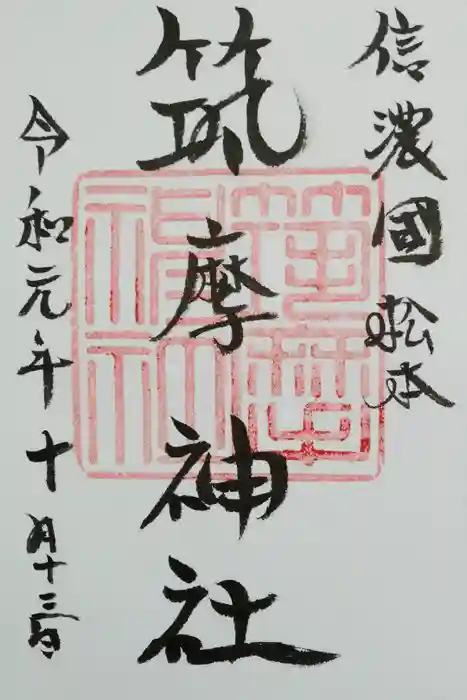 信濃國松本
筑摩神社
令和元年十月十三日